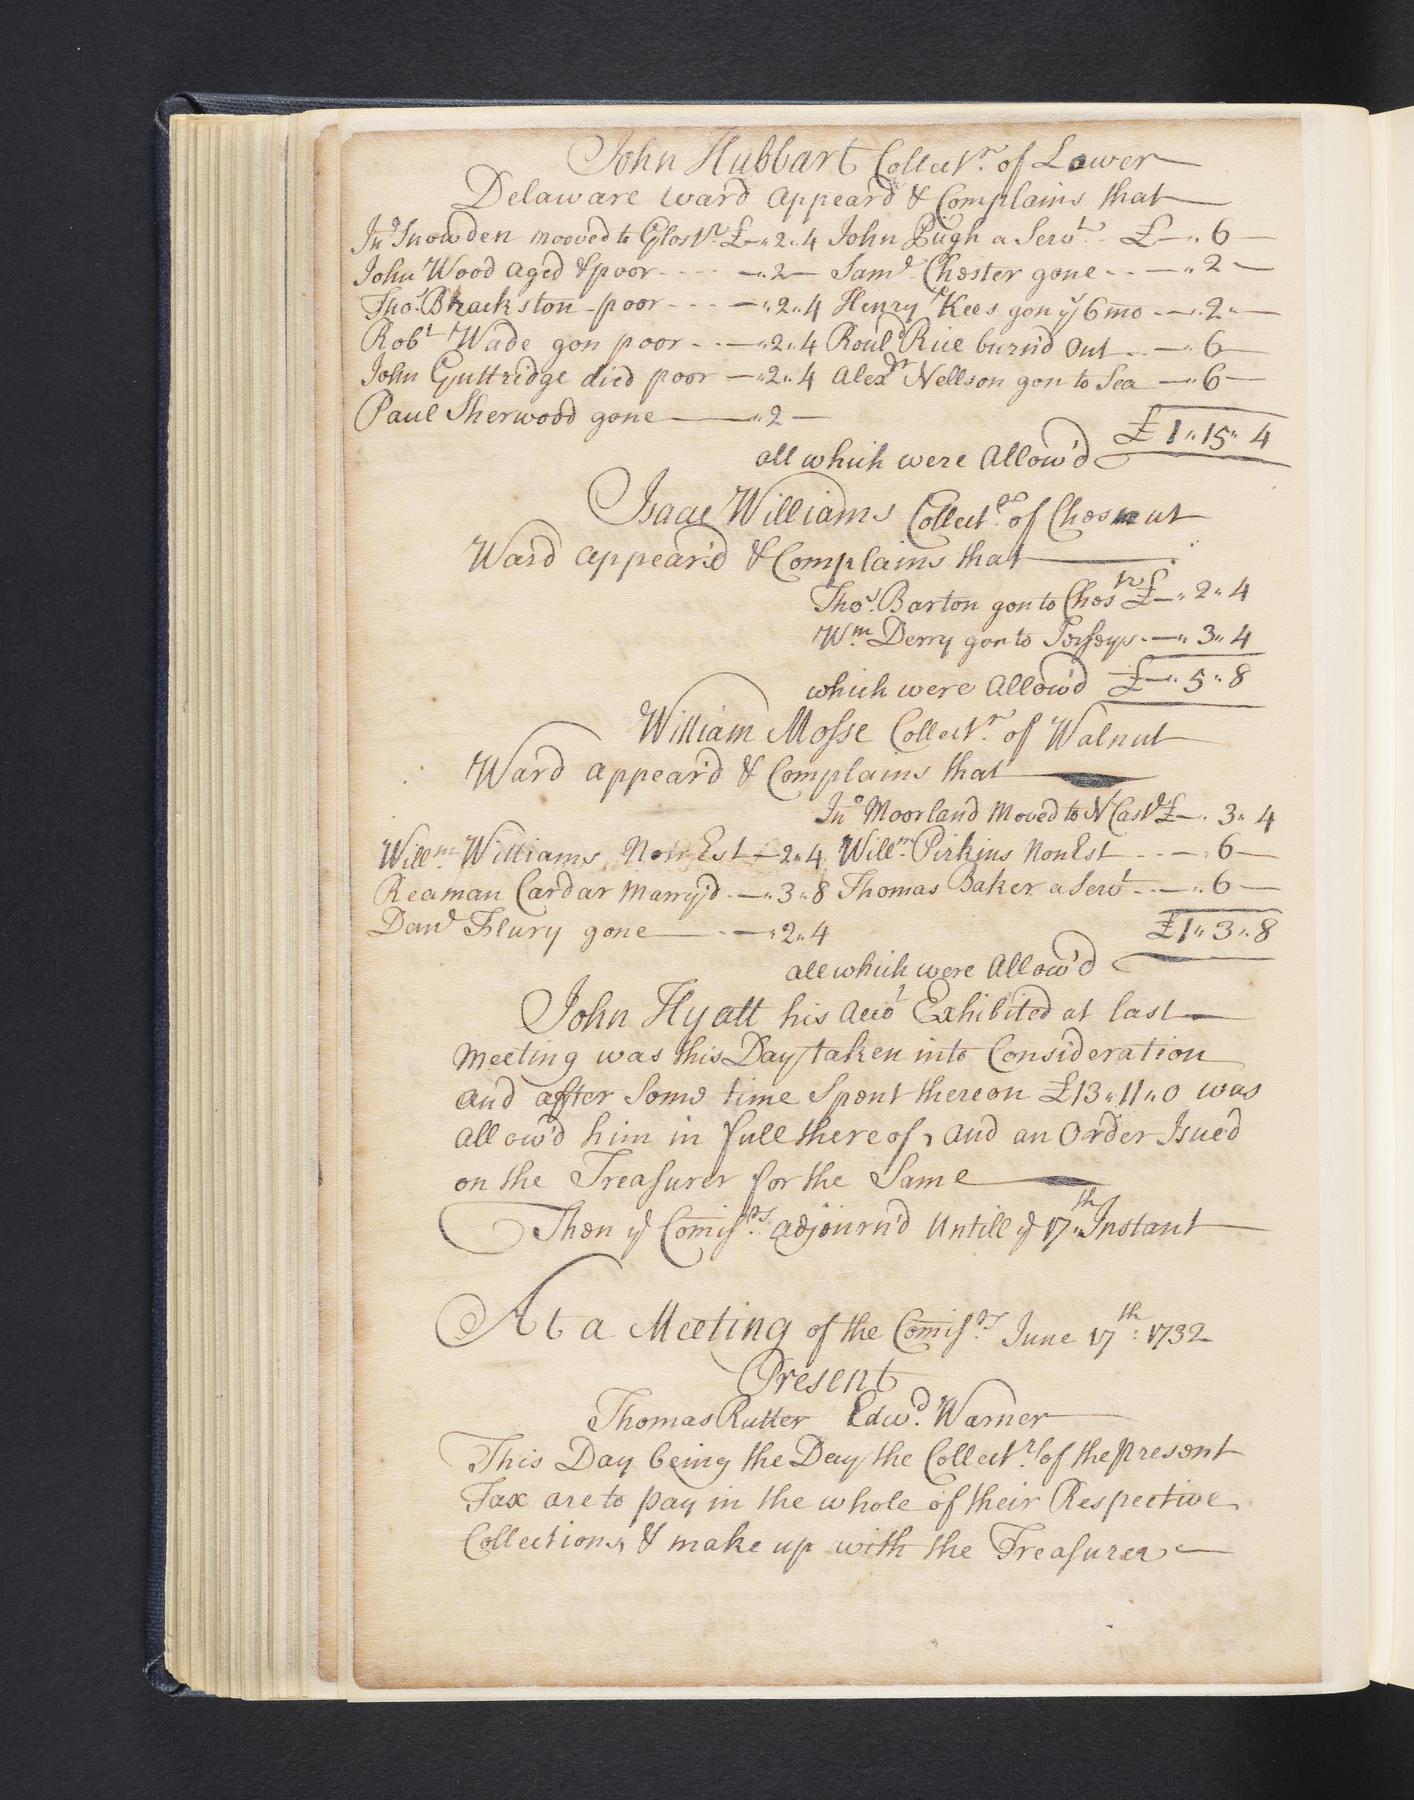 John Hubbart Collectr. of Lower
Delaware ward appeard & Complains that
Jno Snowden mooved to Glostr. £-"2"4 John Pugh a Servt. £-"6-
John Wood aged & poor - - - - -"2- Saml. Chester gone - - -"2-
Thos. Brackston - poor - - - -"2"4 Henry Kees gon ye 6 mo - -"2"-
Robt Wade gon poor - - -"2"4 Rould Rice burn'd Out - - -"6-
John Guttridge died poor -"2"4 Alexdr Nellson gon to Sea -"6-
Paul Sherwood gone -"2-
£1"15"4
all which were Allow'd
Isaac Williams Collectr. of Chesnut
Ward appear'd & Complains that
Thos. Barton gon to Chestr £-"2"4
Wm. Derry gon to Jerseys -"3"4
which were Allow'd £-"5"8
William Mosse Collectr. of Walnut
Ward appear'd & Complains that
Jno Moorland Moved to N Castl £-"3"4
Willm. Williams Non Est -2"4 Willm. Pirkins Non Est - - -"6-
Reaman Cardar Marry'd -"3"8 Thomas Baker a Servt - - -"6-
Danl Flury gone - -"2"4 £1"3"8
all which were Allow'd
John Hyatt his Accot Exhibited at last
meeting was this Day taken into Consideration
and after Some time Spent thereon £13"11"0 was
allow'd him in full thereof, and an Order Isued
on the Treasurer for the Same
Then ye Comissrs. adjourn'd Untill ye 17th Instant
At a Meeting of the Comissrs. June 17th: 1732
Present
Thomas Rutter Edwd. Warner
This Day being the Day the Collectrs. of the present
Tax are to pay in the whole of their Respective
Collections, & make up with the Treasurer